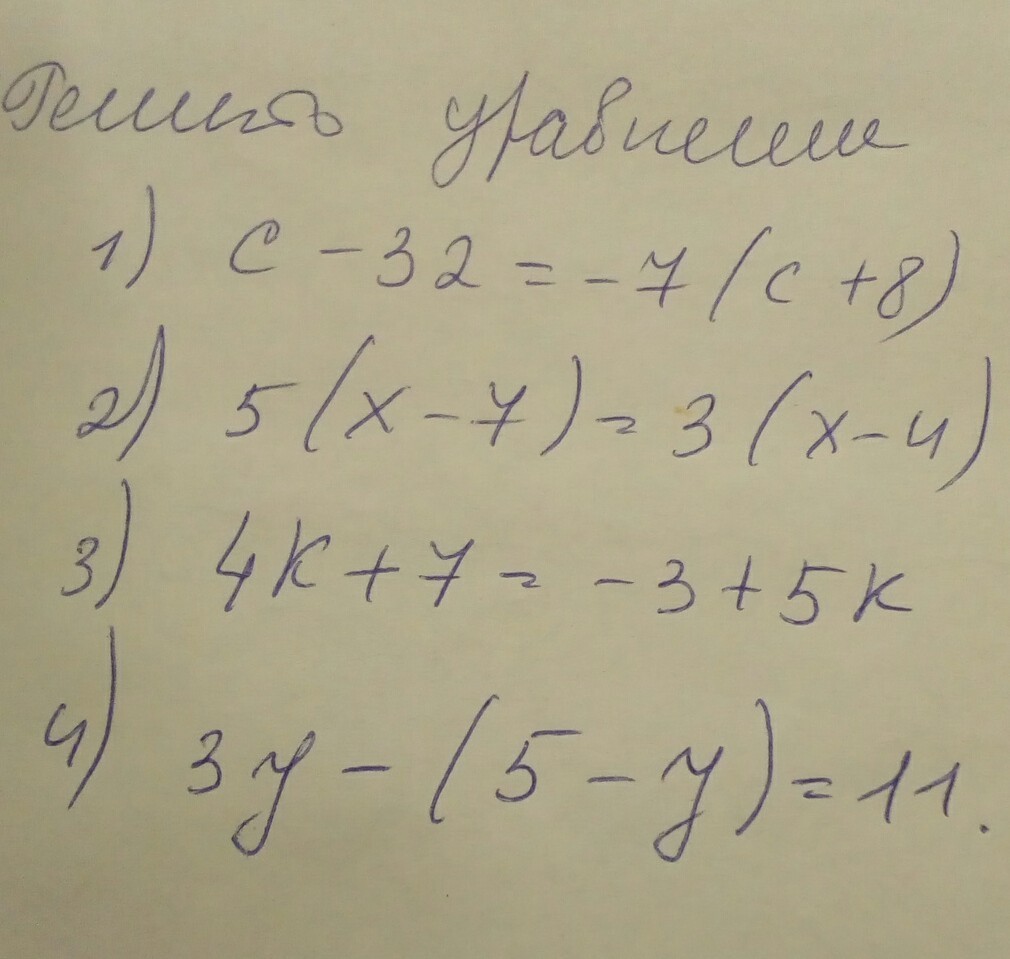 Решить уравнение
1) c - 32 = -7(c + 8)
2) 5(x - 7) = 3(x - 4)
3) 4k + 7 = -3 + 5k
4) 3y - (5 - y) = 11.